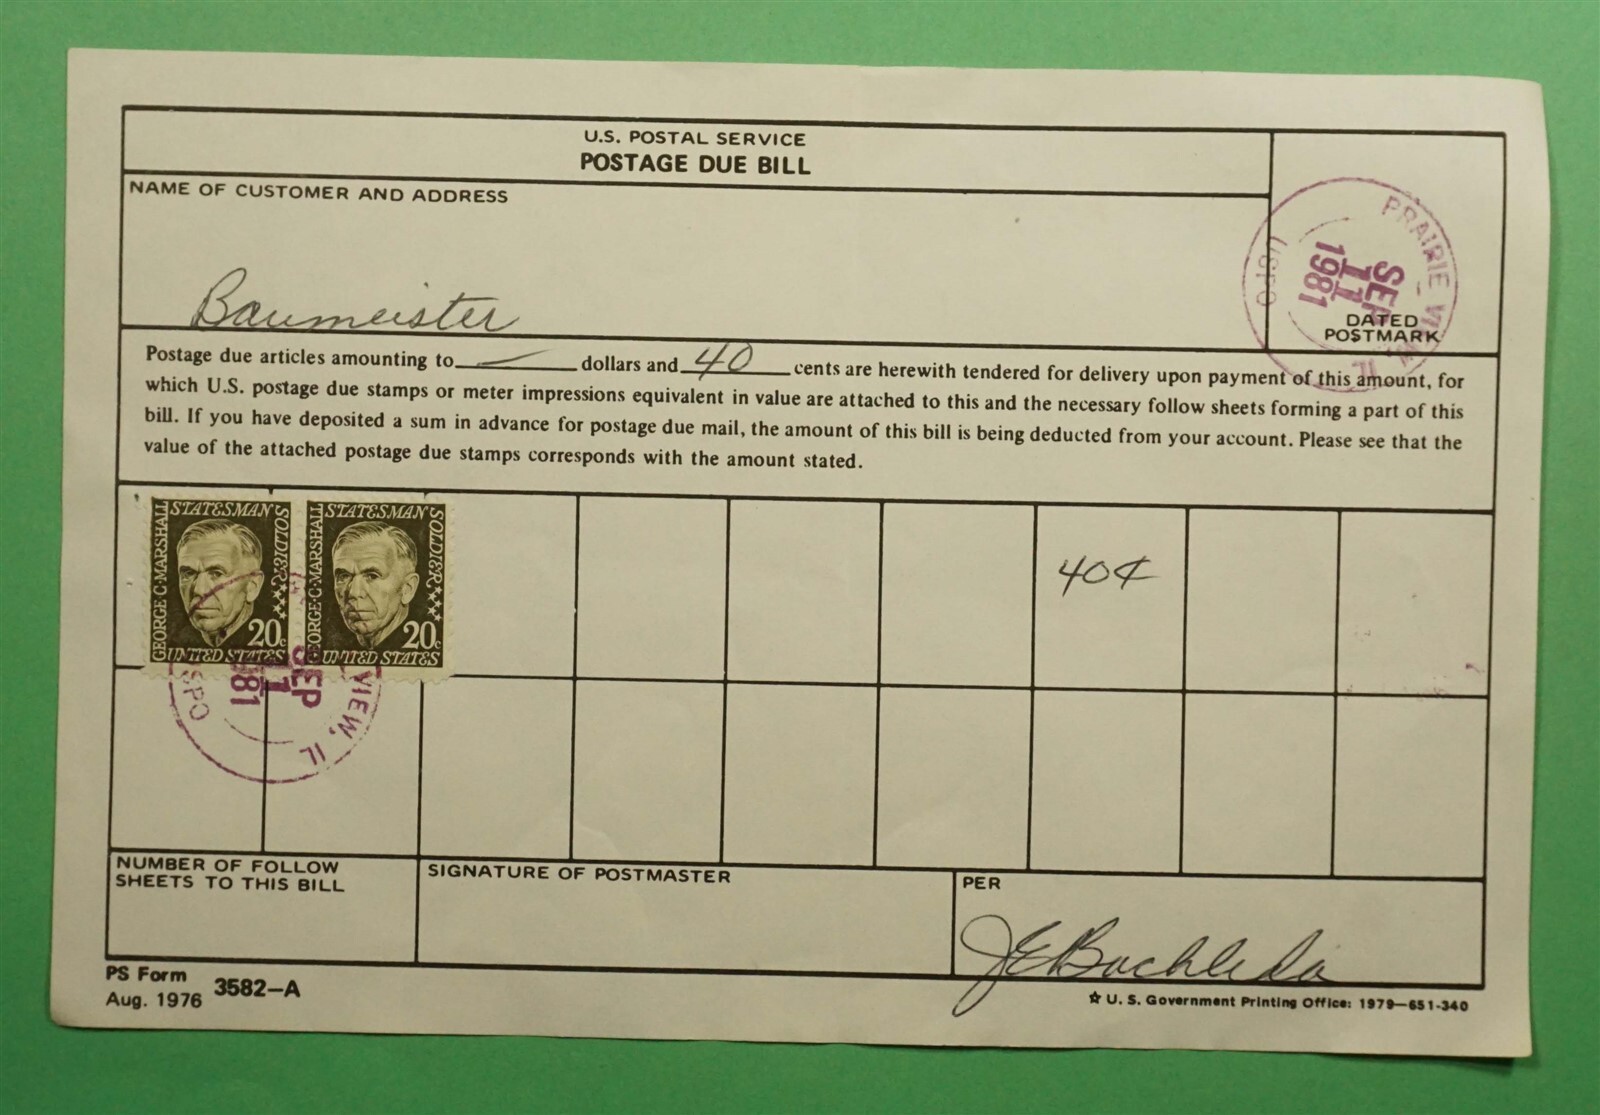 U.S. POSTAL SERVICE
POSTAGE DUE BILL
NAME OF CUSTOMER AND ADDRESS
Baumeister
PRAIRIE VIEW, IL
SEP
11
1981
USPO
DATED
POSTMARK
Postage due articles amounting to — dollars and 40 cents are herewith tendered for delivery upon payment of this amount, for
which U.S. postage due stamps or meter impressions equivalent in value are attached to this and the necessary follow sheets forming a part of this
bill. If you have deposited a sum in advance for postage due mail, the amount of this bill is being deducted from your account. Please see that the
value of the attached postage due stamps corresponds with the amount stated.
GEORGE C. MARSHALL STATESMAN SOLDIER
20c
UNITED STATES
GEORGE C. MARSHALL STATESMAN SOLDIER
20c
UNITED STATES
40¢
VIEW, IL
SEP
11
981
SPO
NUMBER OF FOLLOW
SHEETS TO THIS BILL
SIGNATURE OF POSTMASTER
PER
J E Bachleda
PS Form 3582-A
Aug. 1976
☆ U. S. Government Printing Office: 1979—651-340